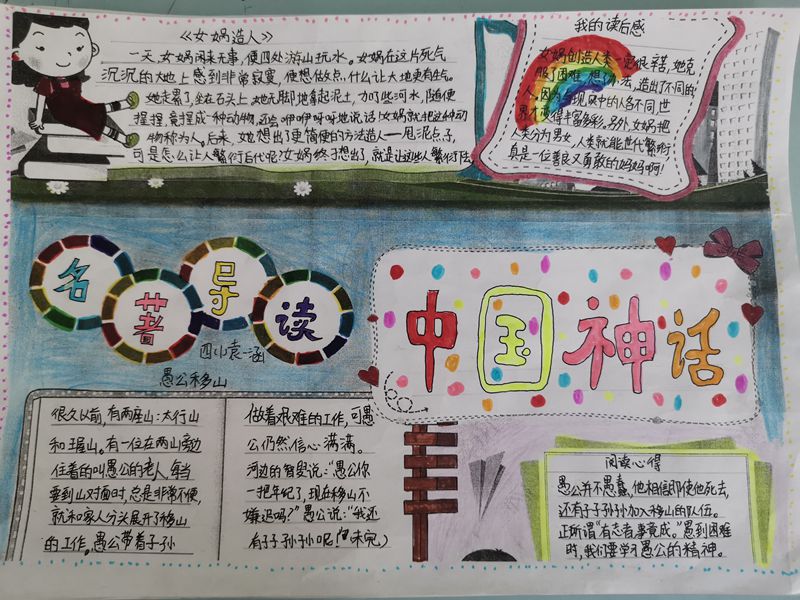 《女娲造人》
一天,女娲闲来无事,便四处游山玩水。女娲在这片死气
沉沉的大地上感到非常寂寞,便想做点什么让大地更有生气。
她走累了,坐在石头上,她无聊地拿起泥土,加了些河水,随便
捏捏,竟捏成一种动物,还会咿咿呀呀地说话!女娲就把这种动
物称为人。后来,她想出了更简便的方法造人—甩泥点子,
可是怎么让人繁衍后代呢?女娲终于想出了,就是让这些人繁衍后
我的读后感
女娲创造人类一定很辛苦,她克
服了困难,想了办法,造出了不同的
人,因为
现实中的人各不同,世
界才变得丰富多彩。另外,女娲把
人类分为男女,人类就能世代繁衍,
真是一位善良又勇敢的妈妈啊!
名著导读
四(1)袁一涵
中国神话
愚公移山
很久以前,有两座山:太行山
和王屋山。有一位在两山旁边
住着的叫愚公的老人,每当
要到山对面时,总是非常不便,
就和家人分头展开了移山
的工作。愚公带着子孙
做着艰难的工作,可愚
公仍然信心满满。
河边的智叟说:“愚公你
一把年纪了,现在移山不
嫌迟吗?”愚公说:“我还
有子子孙孙呢!”(未完)
阅读心得
愚公并不愚蠢,他相信即使他死去,
还有子子孙孙加入移山的队伍。
正所谓“有志者事竟成。”遇到困难
时,我们要学习愚公的精神。